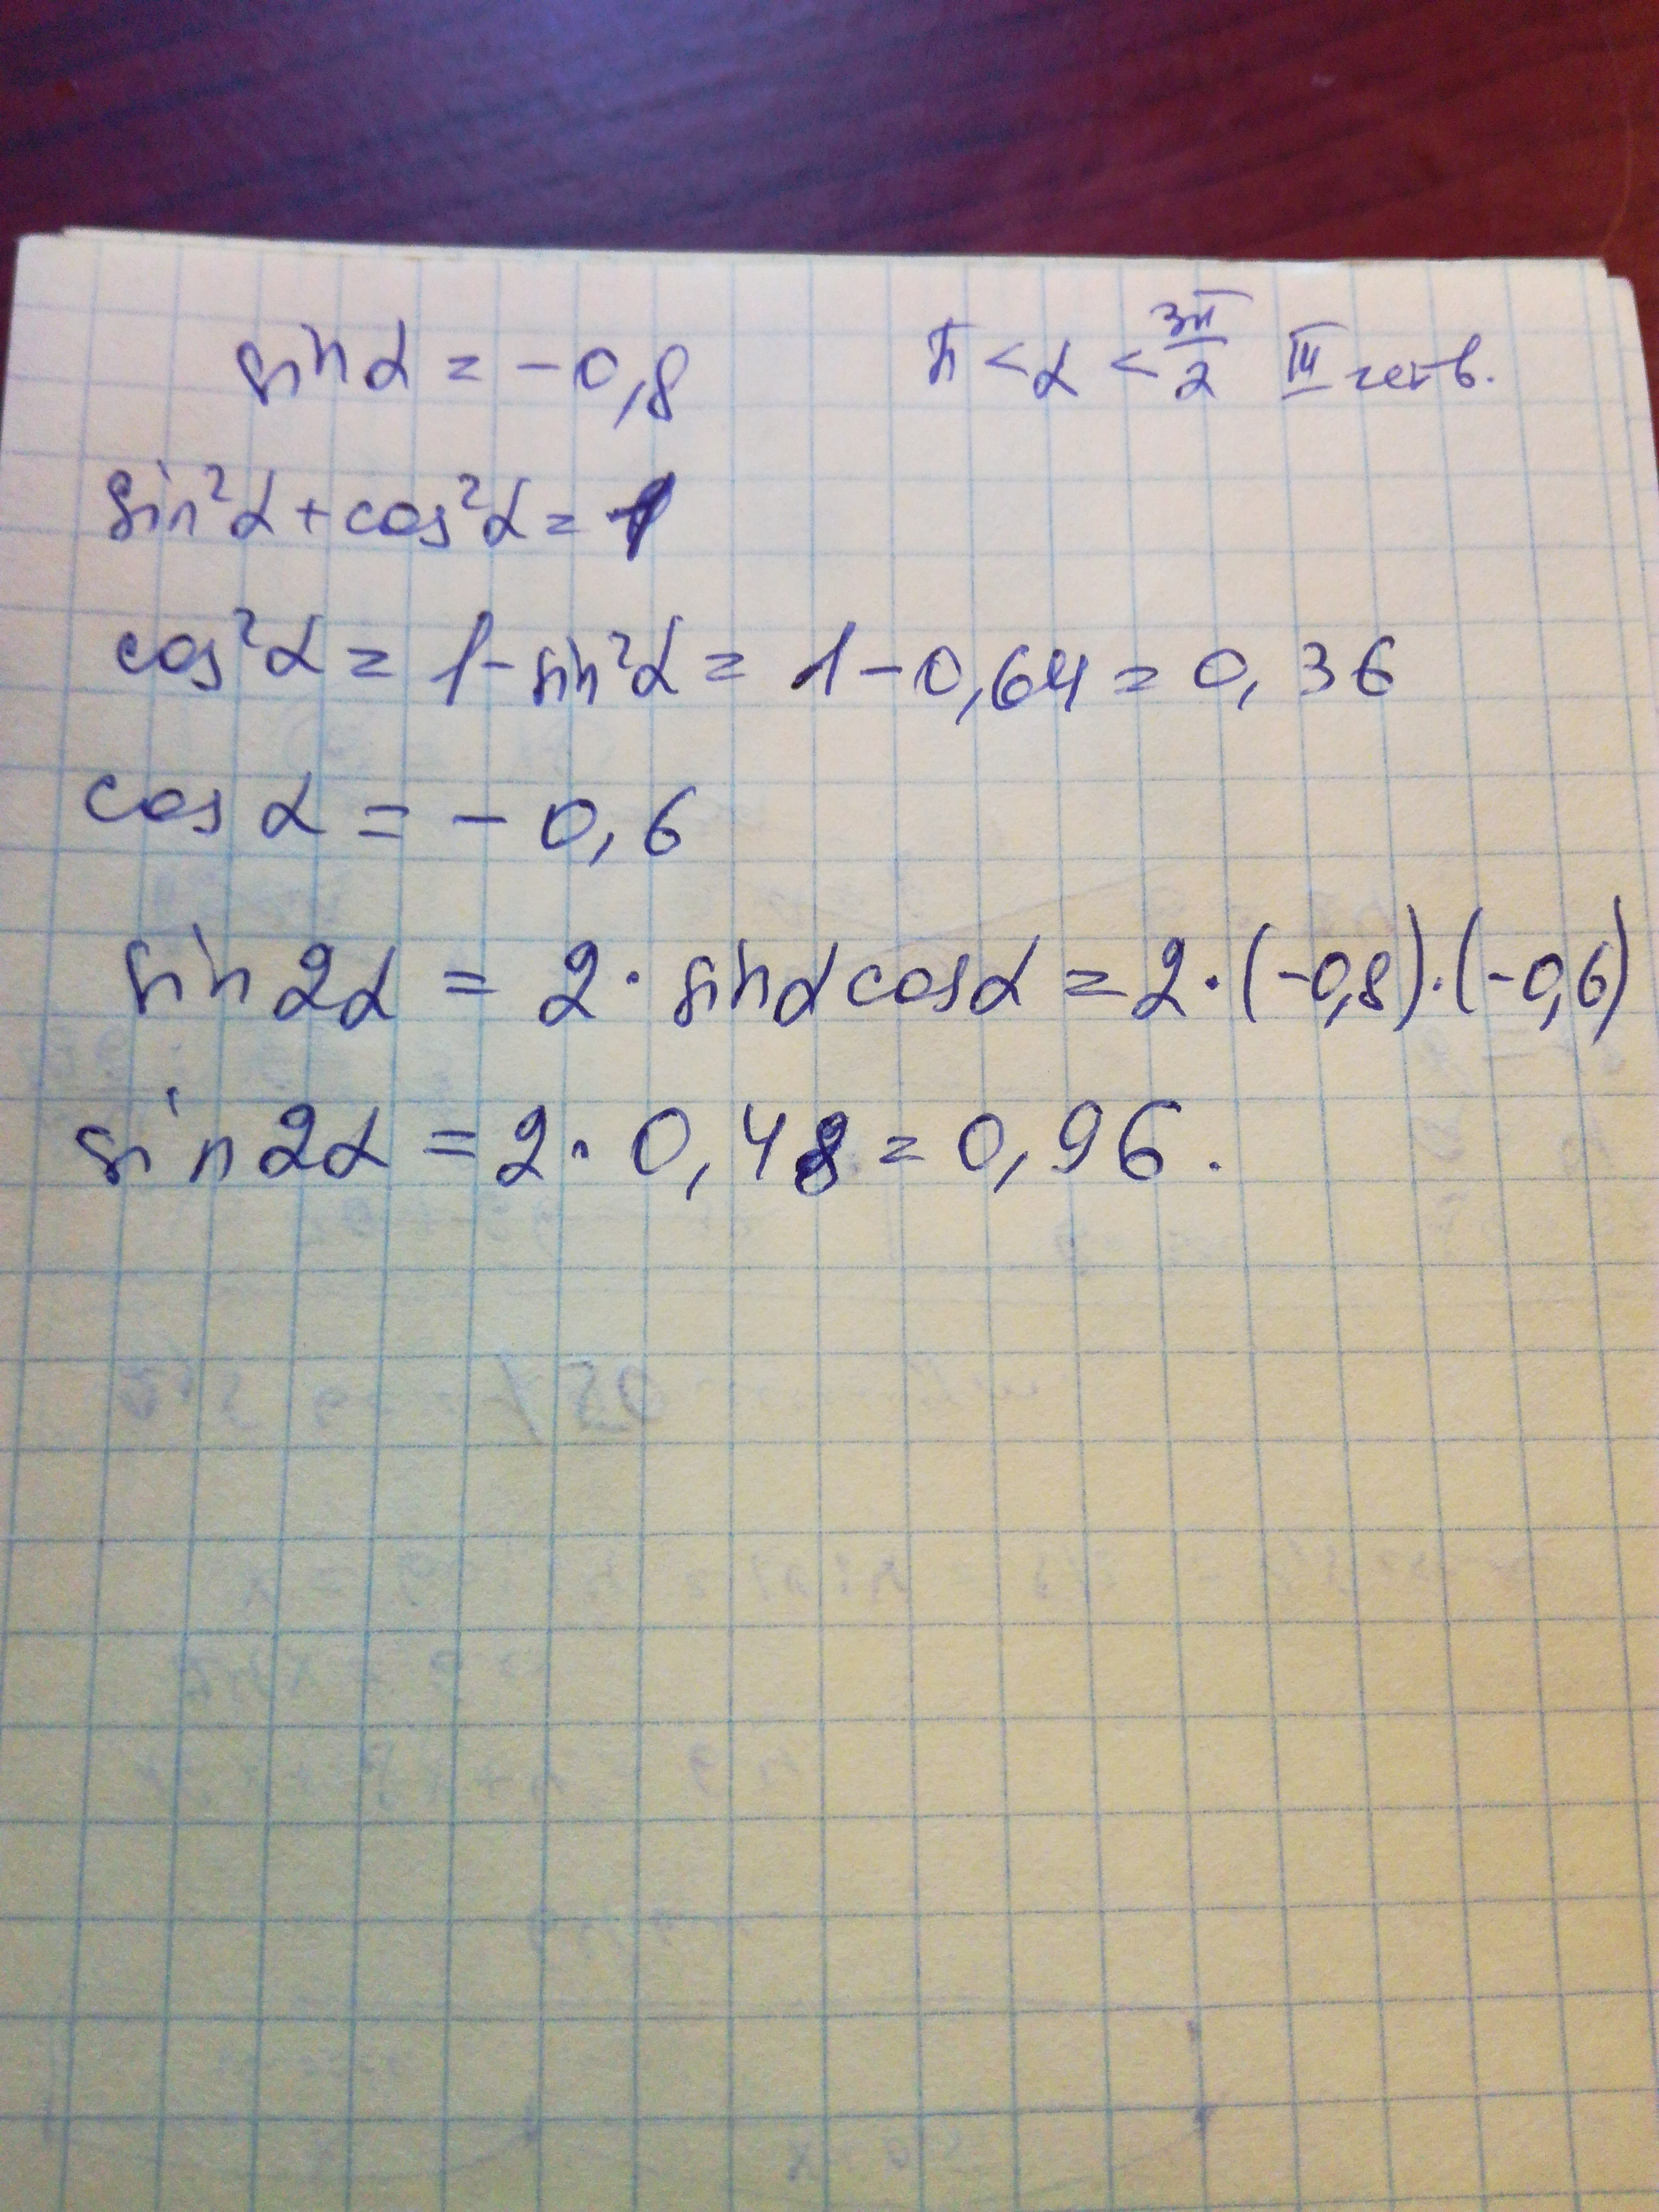 sin α = -0,8    π < α < 3π/2  III четв.
sin²α + cos²α = 1
cos²α = 1 - sin²α = 1 - 0,64 = 0,36
cos α = - 0,6
sin 2α = 2 · sin α cos α = 2 · (-0,8) · (-0,6)
sin 2α = 2 · 0,48 = 0,96.